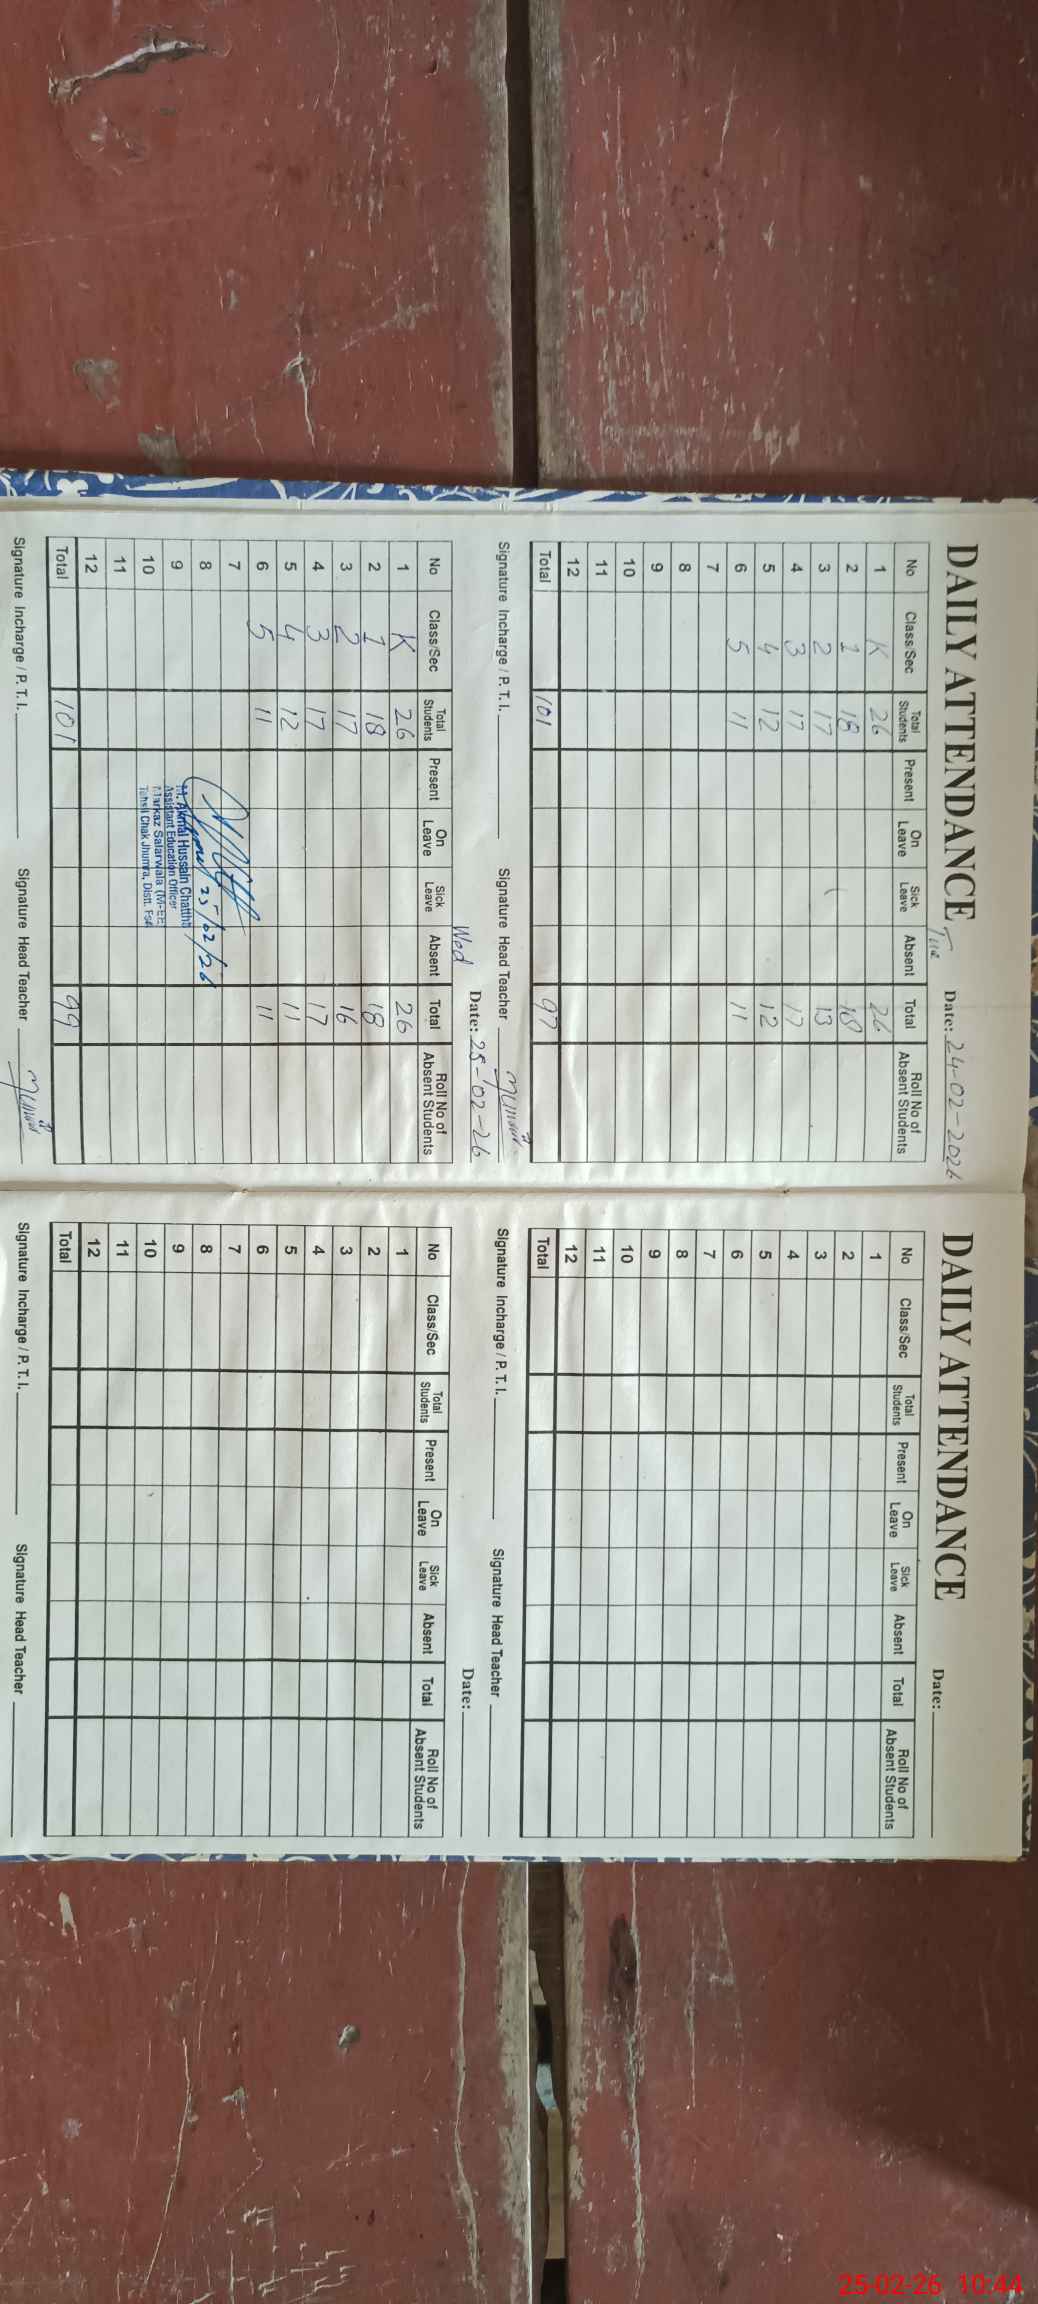 DAILY ATTENDANCE
Tue
Date: 24-02-2026
No Class/Sec Total Students Present On Leave Sick Leave Absent Total Roll No of Absent Students
1 K 26 26
2 1 18 18
3 2 17 13
4 3 17 17
5 4 12 12
6 5 11 11
7
8
9
10
11
12
Total 101 97
Signature Incharge / P. T. I. Signature Head Teacher
Wed
Date: 25-02-26
No Class/Sec Total Students Present On Leave Sick Leave Absent Total Roll No of Absent Students
1 K 26 26
2 1 18 18
3 2 17 16
4 3 17 17
5 4 12 11
6 5 11 11
7
8
9
10
11
12
Total 101 99
25/02/26
M. Akmal Hussain Chattha
Assistant Education Officer
Markaz Salarwala (M-EE
Tehsil Chak Jhumra, Distt. Fsd
Signature Incharge / P. T. I. Signature Head Teacher
DAILY ATTENDANCE
Date:
No Class/Sec Total Students Present On Leave Sick Leave Absent Total Roll No of Absent Students
1
2
3
4
5
6
7
8
9
10
11
12
Total
Signature Incharge / P. T. I. Signature Head Teacher
Date:
No Class/Sec Total Students Present On Leave Sick Leave Absent Total Roll No of Absent Students
1
2
3
4
5
6
7
8
9
10
11
12
Total
Signature Incharge / P. T. I. Signature Head Teacher
25-02-26 10:44